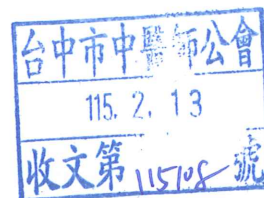 台中市中醫師公會
115. 2. 13
收文第115108號